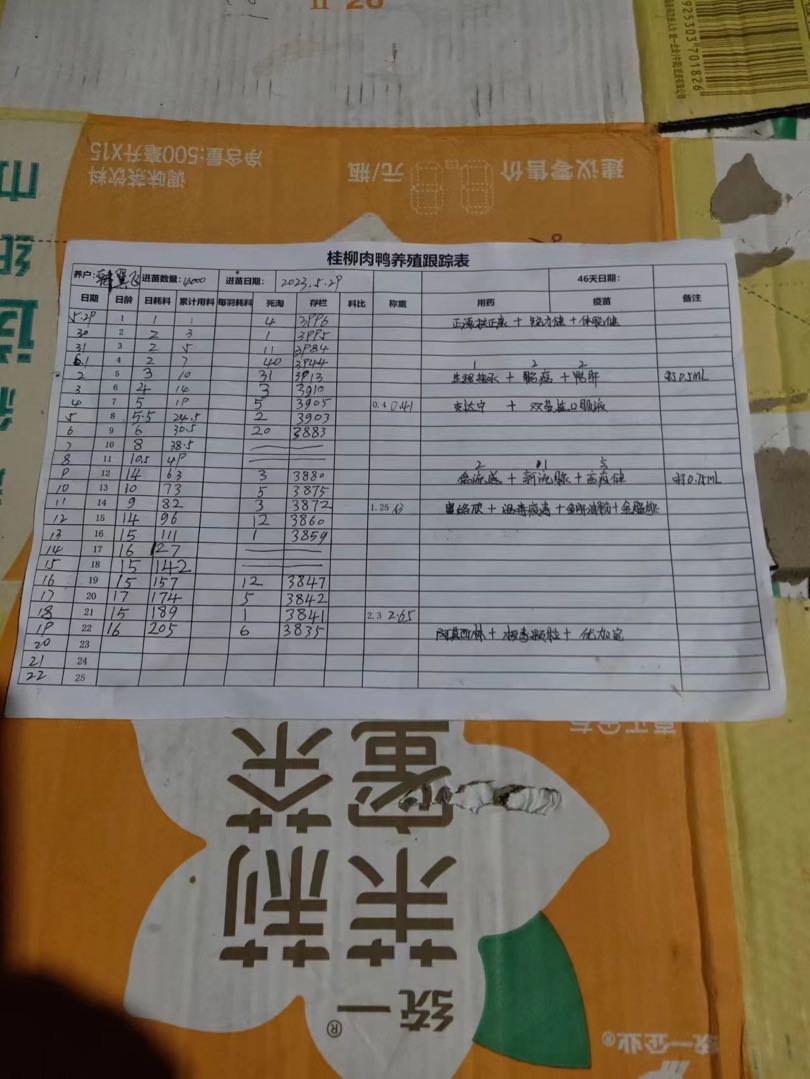 925303701826
净含量:500毫升X15
调味茶饮料
建议零售价 元/瓶
桂柳肉鸭养殖跟踪表
养户: 进苗数量: 4000 进苗日期: 2023.5.29 46天日期:
日期 日龄 日耗料 累计用料 每羽耗料 死淘 存栏 料比 称重 用药 疫苗 备注
5.29 1 1 1 4 3996 + + 
30 2 2 3 1 3995
31 3 2 5 11 3984
6.1 4 2 7 40 3944 1 2 2
2 5 3 10 31 3913 + + 0.5mL
3 6 4 14 3 3910
4 7 5 19 5 3905 0.4 0.41 + 双黄连口服液
5 8 5.5 24.5 2 3903
6 9 6 30.5 20 3883
7 10 8 38.5
8 11 10.5 49 2 5
9 12 14 63 3 3880 + + 0.75mL
10 13 10 73 5 3875
11 14 9 82 3 3872 1.25 + + +
12 15 14 96 12 3860
13 16 15 111 1 3859
14 17 16 127
15 18 15 142
16 19 15 157 12 3847
17 20 17 174 5 3842
18 21 15 189 1 3841 2.3 2.65
19 22 16 205 6 3835 阿莫西林 + +
20 23
21 24
22 25
茉莉
蜜茶
统一®
统一企业®